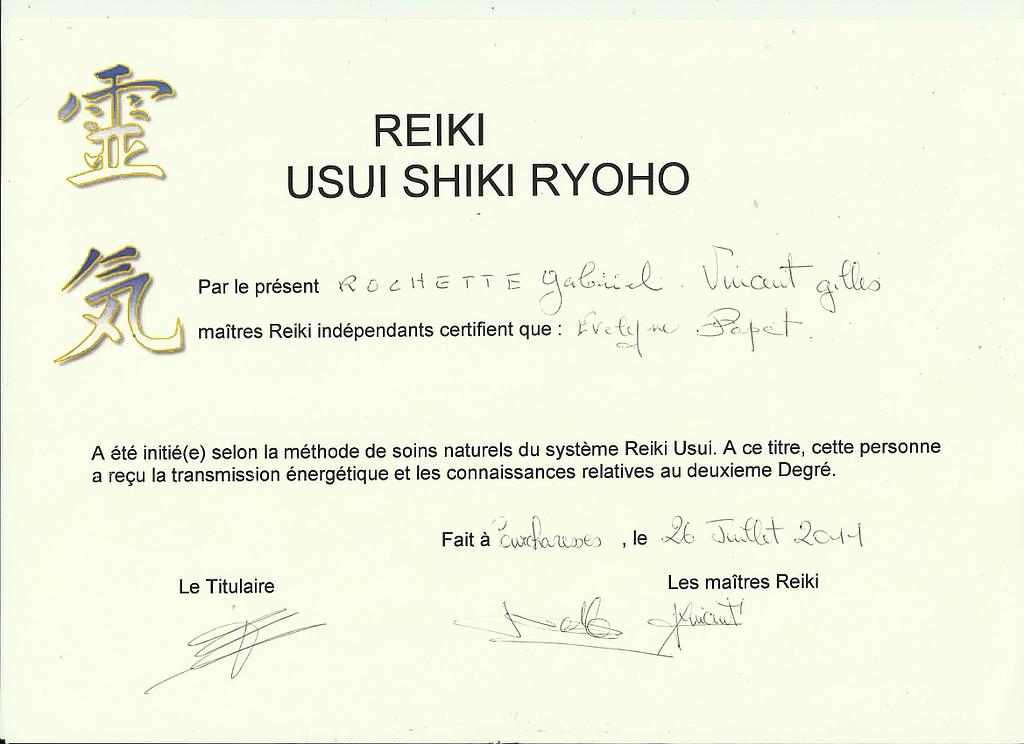 霊
気
REIKI
USUI SHIKI RYOHO
Par le présent ROCHETTE Gabriel. Vincent gilles
maîtres Reiki indépendants certifient que : Evelyne Papet.
A été initié(e) selon la méthode de soins naturels du système Reiki Usui. A ce titre, cette personne
a reçu la transmission énergétique et les connaissances relatives au deuxieme Degré.
Fait à , le 26 Juillet 2011
Le Titulaire
Les maîtres Reiki